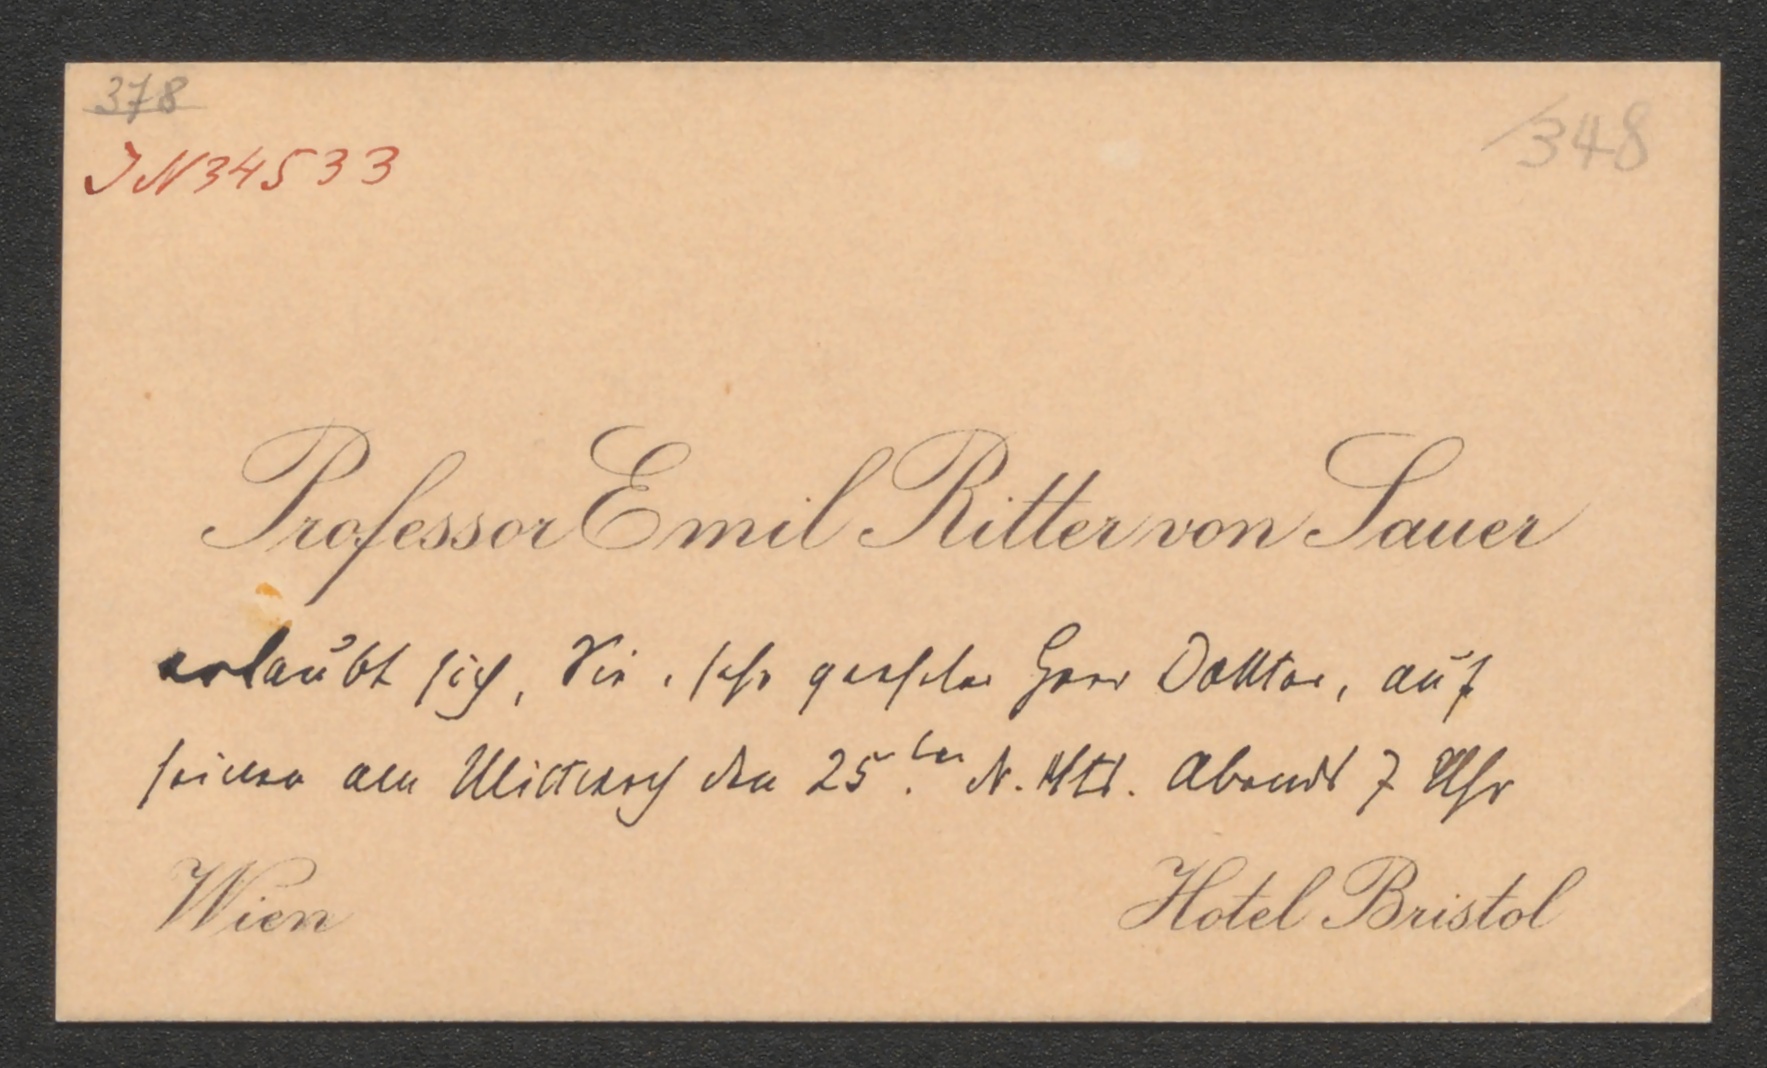 378
/348
IN 34533
Professor Emil Ritter von Sauer
erlaubt sich, Sie, sehr geehrter Herr Doktor, auf
seinen am Mittwoch den 25.ten d. Mts. Abends 7 Uhr
Wien
Hotel Bristol